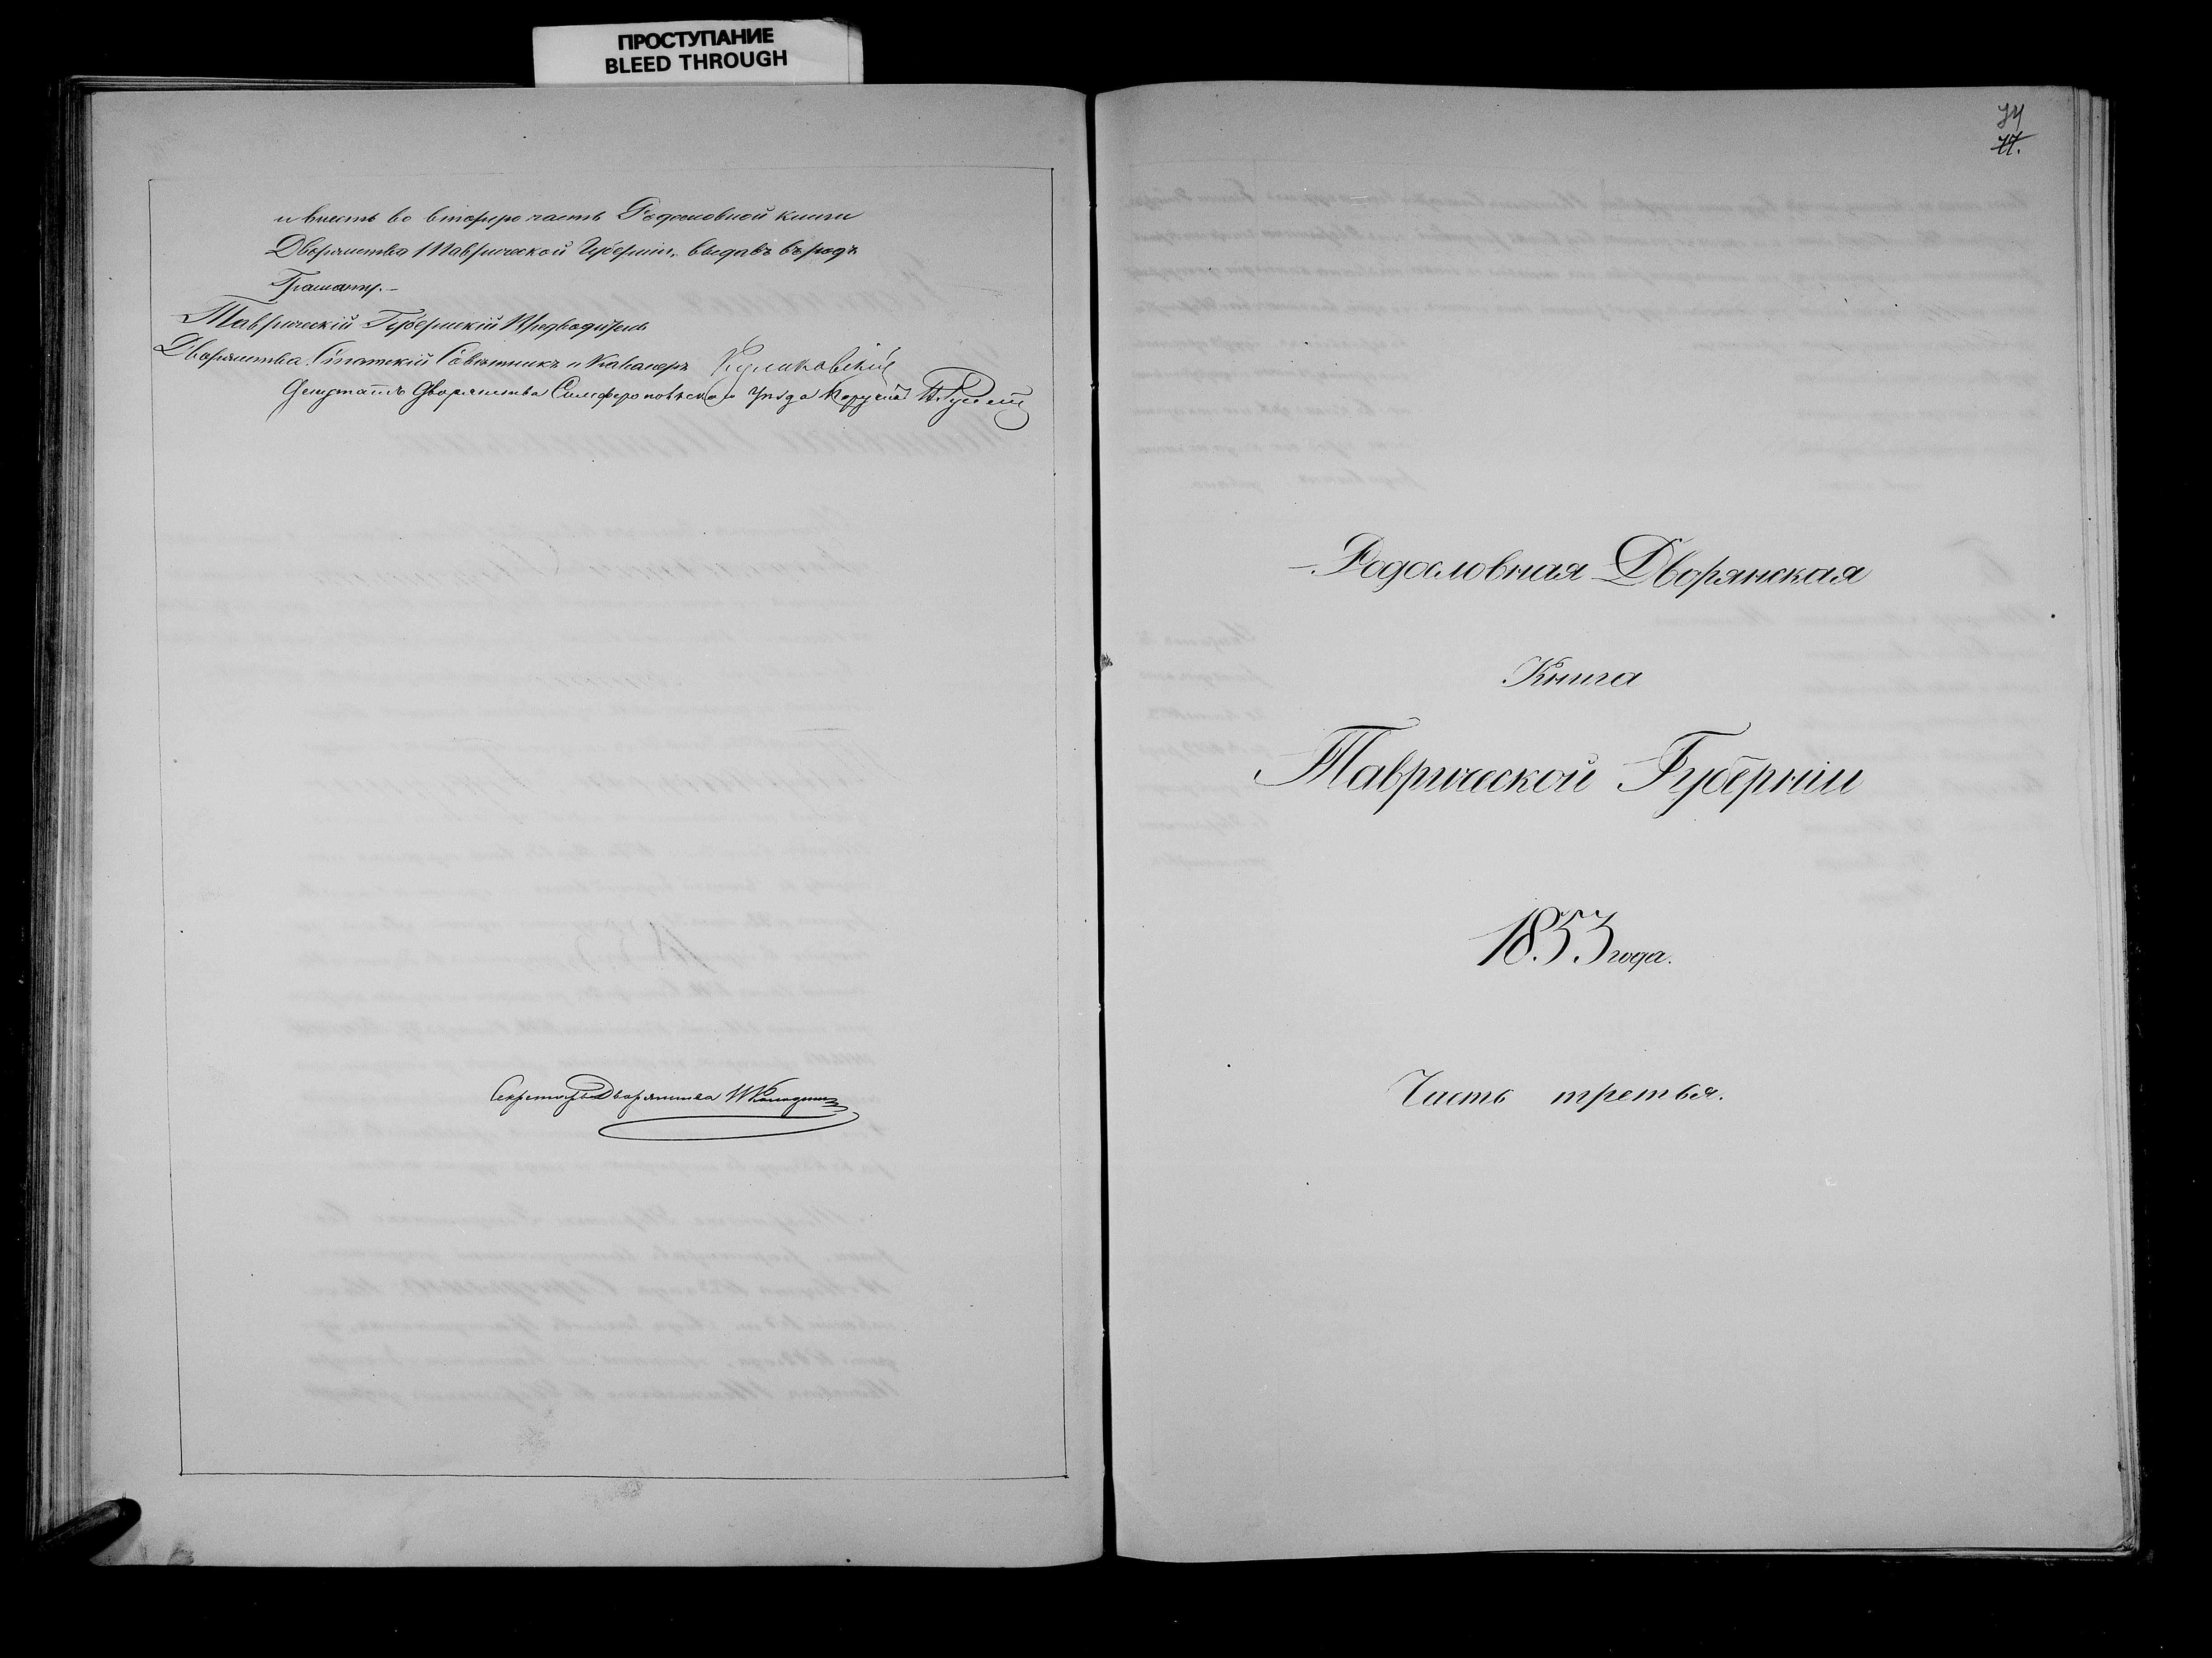 ПРОСТУПАНИЕ
BLEED THROUGH
и внесть во вторую часть Родословной книги
Дворянства Таврической Губерніи, выдавъ въ родъ
Грамоту.—
Таврическій Губернскій Предводитель
Дворянства Статскій Совѣтникъ и Кавалеръ
Депутатъ Дворянства Симферопольскаго уѣзда
Секретарь Дворянства
74
77.
Родословная Дворянская
Книга
Таврической Губерніи
1853 года.
Часть третья.